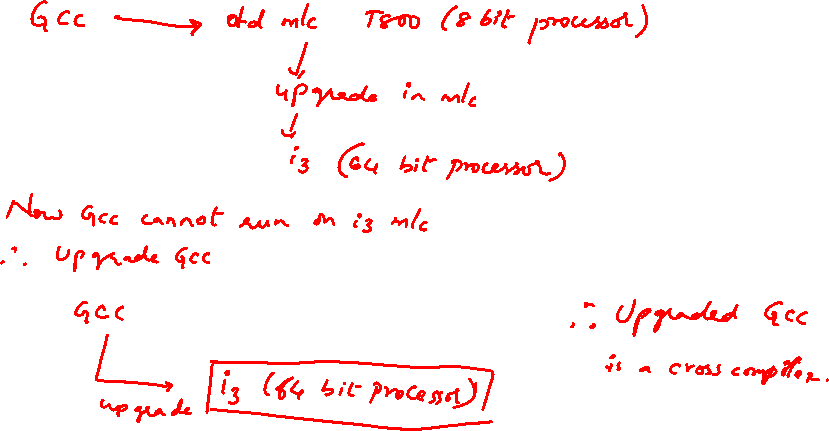 GCC → old m/c T800 (8 bit processor)
↓
upgrade in m/c
↓
i3 (64 bit processor)
Now Gcc cannot run on i3 m/c
∴ Upgrade Gcc
GCC
upgrade → i3 (64 bit processor)
∴ Upgraded Gcc
is a cross compiler.